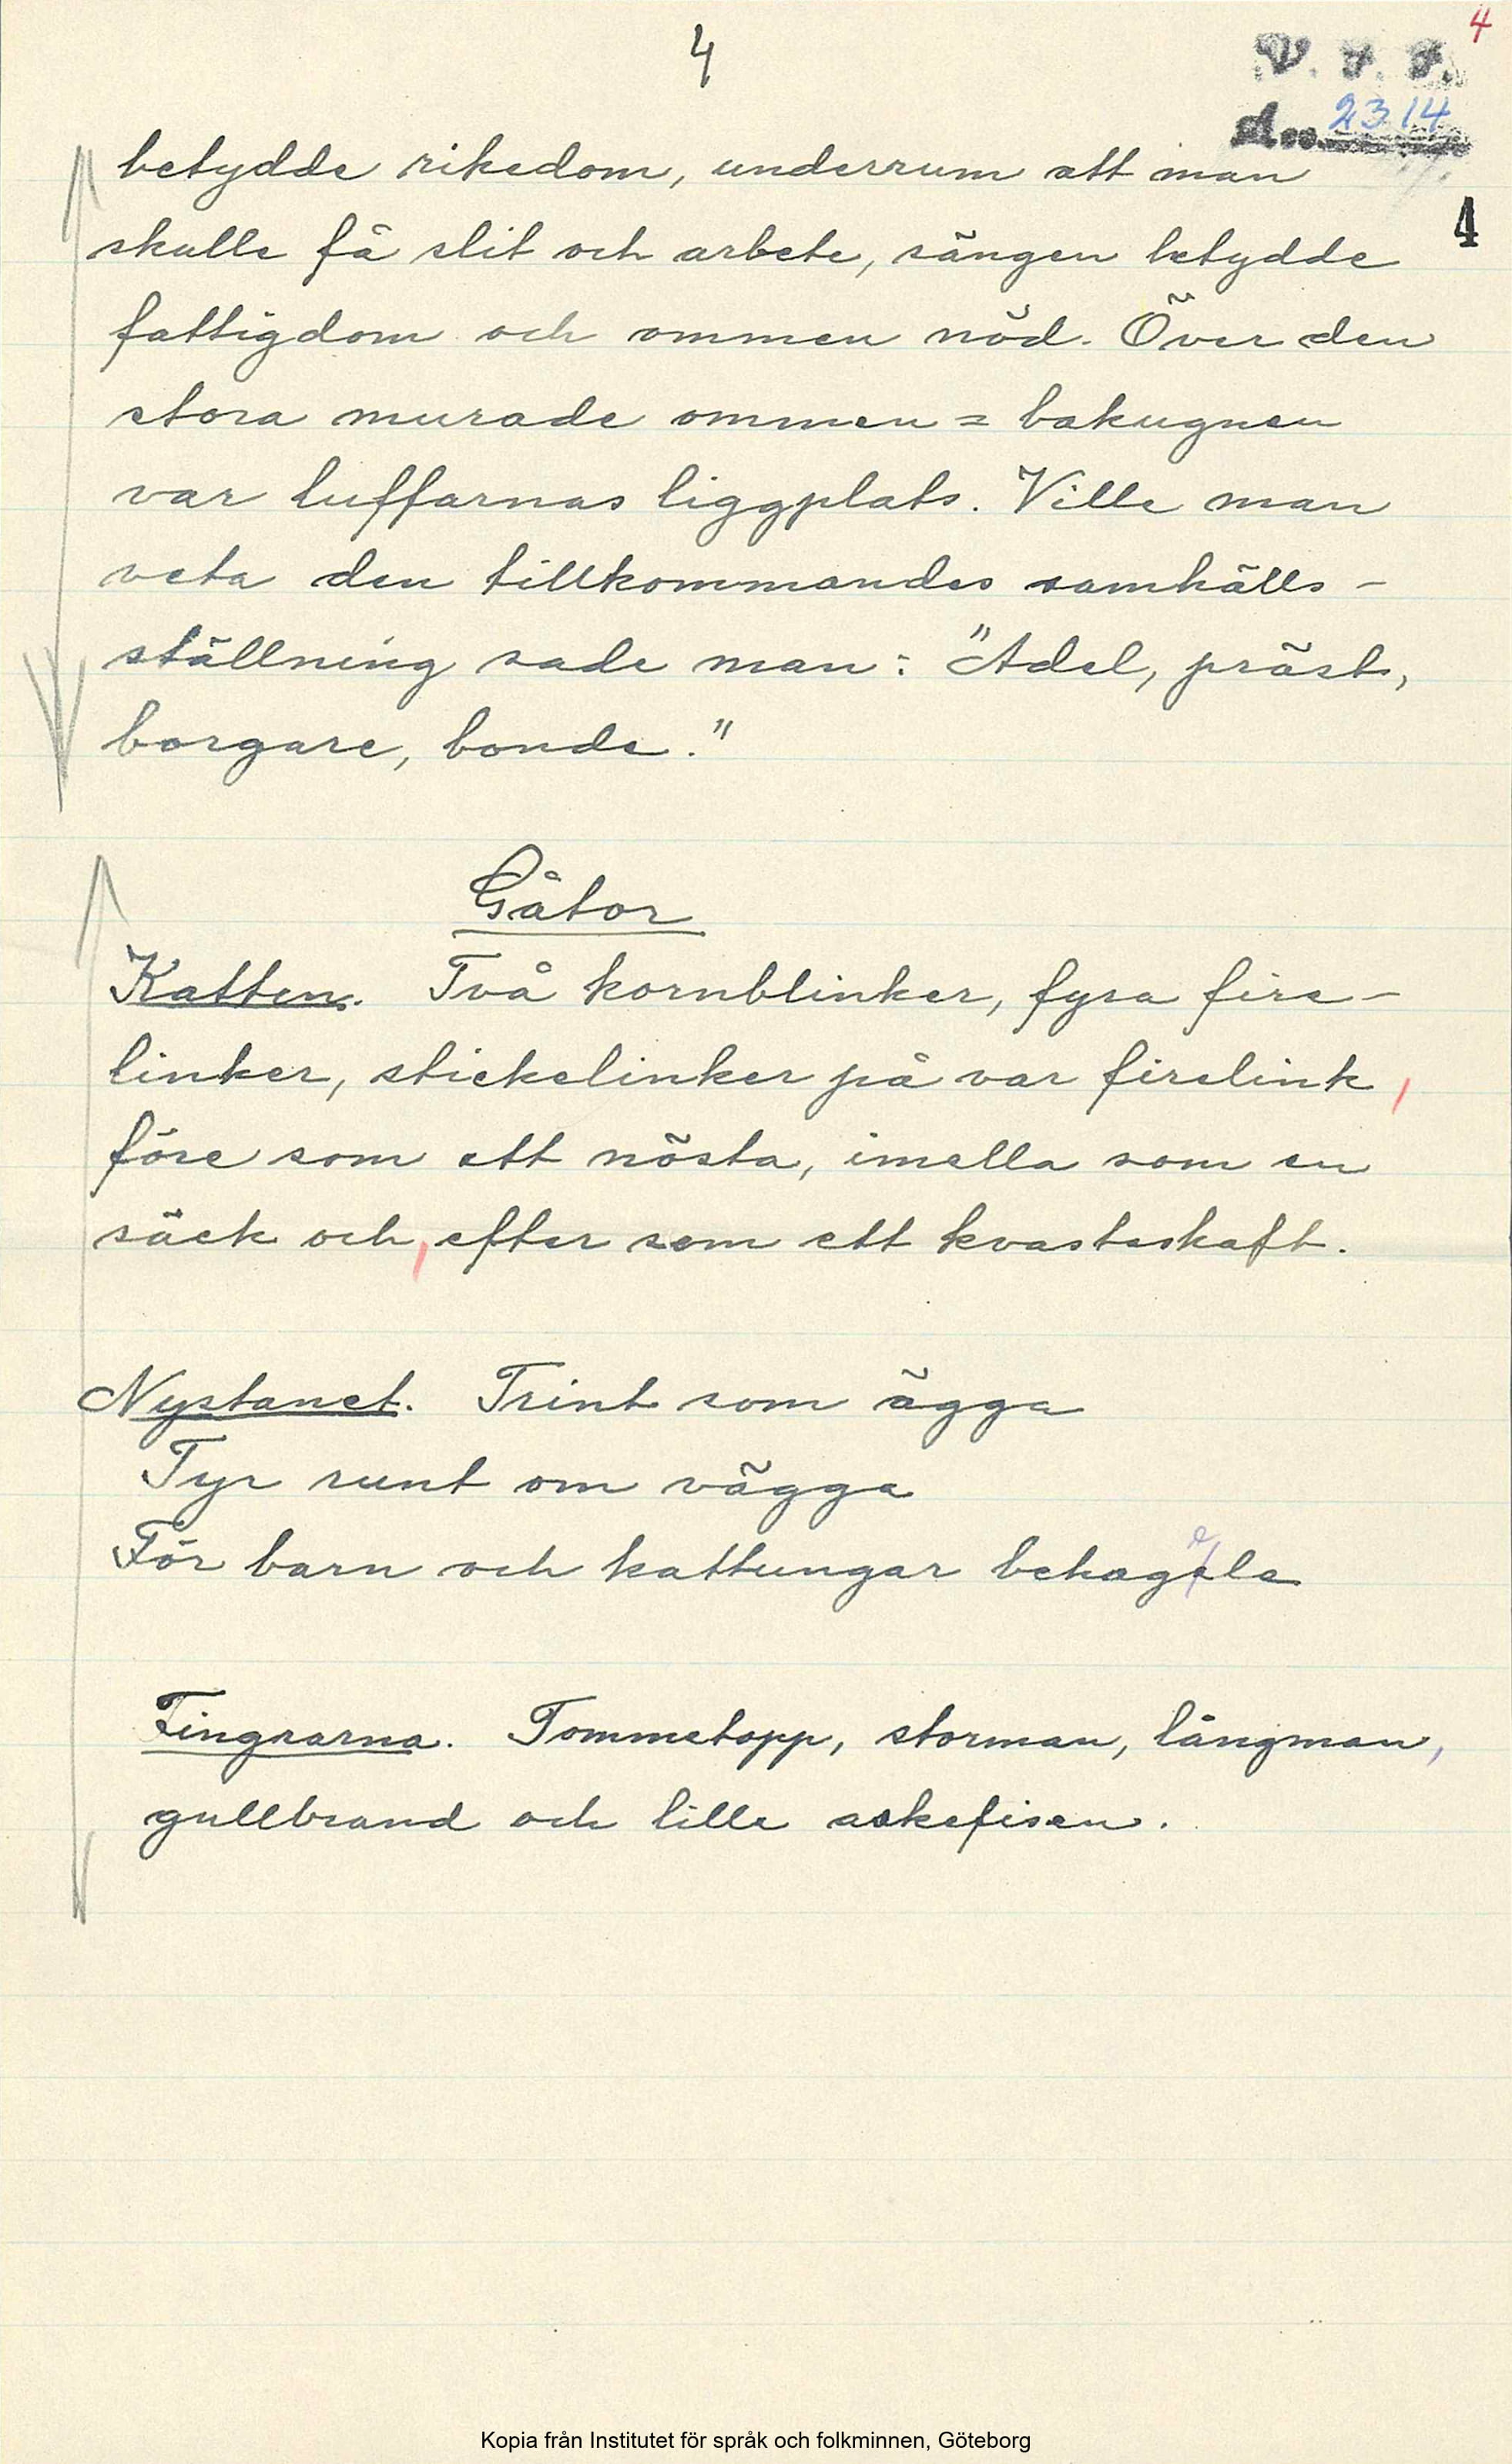 4
4
V. F. F.
Acc. 2314
4
betydde rikedom, underrum att man
skulle få slit och arbete, sängen betydde
fattigdom och ommen nöd. Över den
stora murade ommen = bakugnen
var luffarnas liggplats. Ville man
veta den tillkommandes samhälls-
ställning sade man: "Adel, präst,
borgare, bonde."
Gåtor
Katten. Två kornblinker, fyra fire-
linker, stickelinker på var firelink,
före som ett nösta, imella som en
säck och, efter som ett kvasteskaft.
Nystanet. Trint som ägga
Tyr runt om vägga
För barn och kattungar behagela
Fingrarna. Tommetopp, storman, långman,
gullbrand och lille askefisen.
Kopia från Institutet för språk och folkminnen, Göteborg